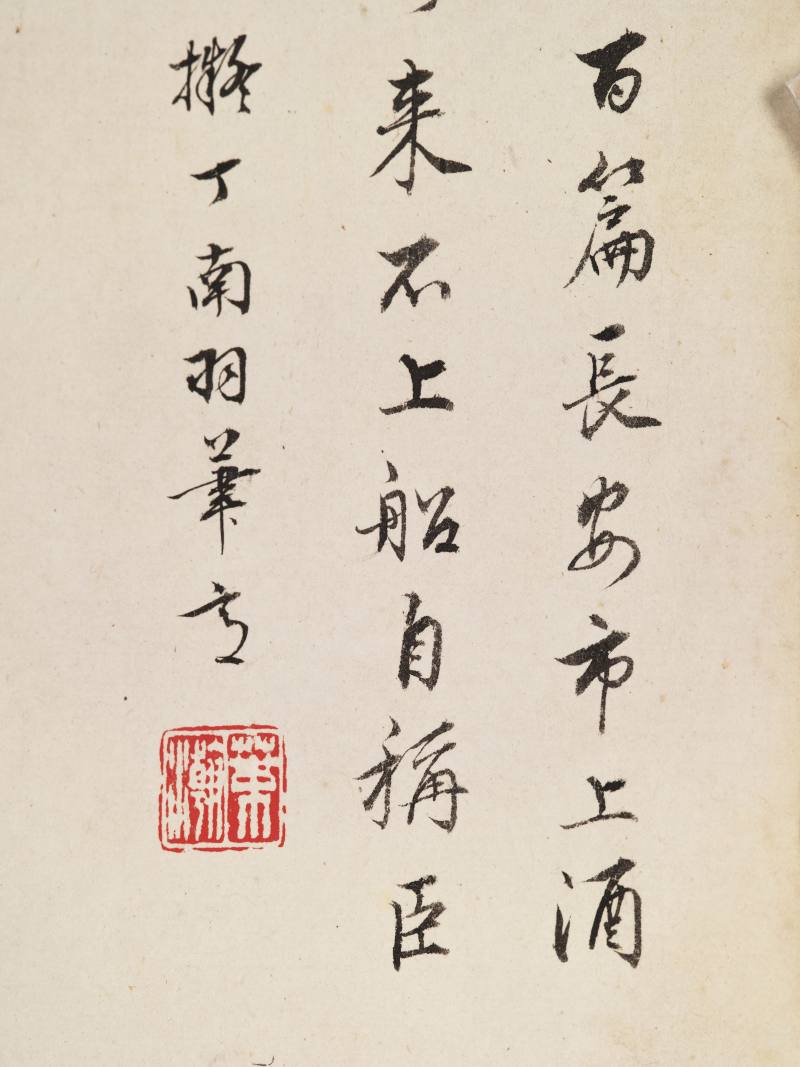 百篇長安市上酒
来不上船自稱臣
擬丁南羽筆意